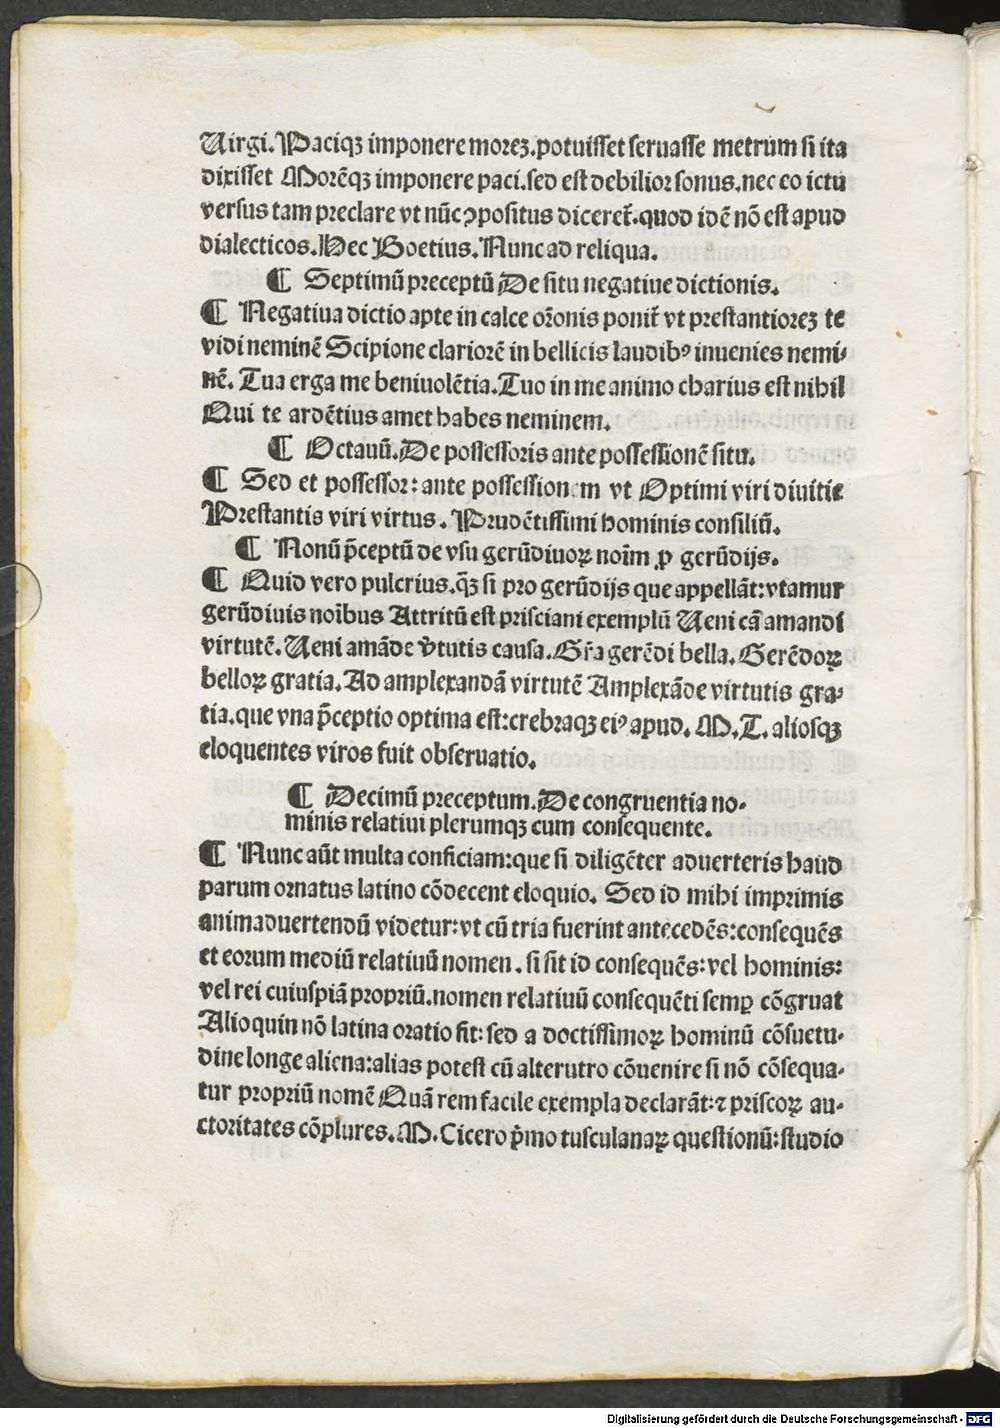 Uirgi. Paciqꝫ imponere moreꝫ. potuisset seruasse metrum si ita
dixisset Morēqꝫ imponere paci. sed est debilior sonus. nec eo ictu
versus tam preclare vt nūc ꝓpositus diceret̄. quod idē nō est apud
dialecticos. Hec Boetius. Nunc ad reliqua.
¶ Septimū preceptū De situ negatiue dictionis.
¶ Negatiua dictio apte in calce or̄onis ponit̄ vt prestantioreꝫ te
vidi neminē Scipione clariorē in bellicis laudibꝰ inuenies nemi-
nē. Tua erga me beniuolētia. Tuo in me animo charius est nihil
Qui te ardētius amet habes neminem.
¶ Octauū. De possessoris ante possessionē situ.
¶ Sed et possessor: ante possessionem vt Optimi viri diuitie
Prestantis viri virtus. Prudētissimi hominis consiliū.
¶ Nonū p̄ceptū de vsu gerūdiuoꝝ noīm ꝓ gerūdijs.
¶ Quid vero pulcrius. qꝫ̄ si pro gerūdijs que appellāt: vtamur
gerūdiuis noībus Attritū est prisciani exemplū Ueni cā amandi
virtutē. Ueni amāde v̄tutis causa. Gr̄a gerēdi bella. Gerēdoꝝ
belloꝝ gratia. Ad amplexandā virtutē Amplexāde virtutis gra-
tia. que vna p̄ceptio optima est: crebraqꝫ eiꝰ apud. M. T. aliosqꝫ
eloquentes viros fuit obseruatio.
¶ Decimū preceptum. De congruentia no-
minis relatiui plerumqꝫ cum consequente.
¶ Nunc aūt multa conficiam: que si diligēter aduerteris haud
parum ornatus latino cōdecent eloquio. Sed id mihi imprimis
animaduertendū videtur: vt cū tria fuerint antecedēs: consequēs
et eorum mediū relatiuū nomen. si sit id consequēs: vel hominis:
vel rei cuiuspiā propriū. nomen relatiuū consequēti semꝑ cōgruat
Alioquin nō latina oratio fit: sed a doctissimoꝝ hominū cōsuetu-
dine longe aliena: alias potest cū alterutro cōuenire si nō cōsequa-
tur propriū nomē Quā rem facile exempla declarāt: ⁊ priscoꝝ au-
ctoritates cōplures. M. Cicero p̄mo tusculanaꝝ questionū: studio
Digitalisierung gefördert durch die Deutsche Forschungsgemeinschaft - DFG